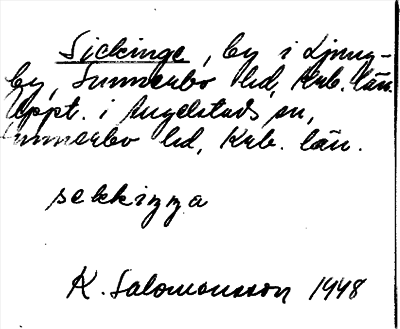 Sickinge, by i Ljung-
by, Sunnerbo hd, Krb. län.
Uppt. i Angelstads sn,
Sunnerbo hd, Krb. län.
sekkiŋŋa
K. Salomonsson 1948